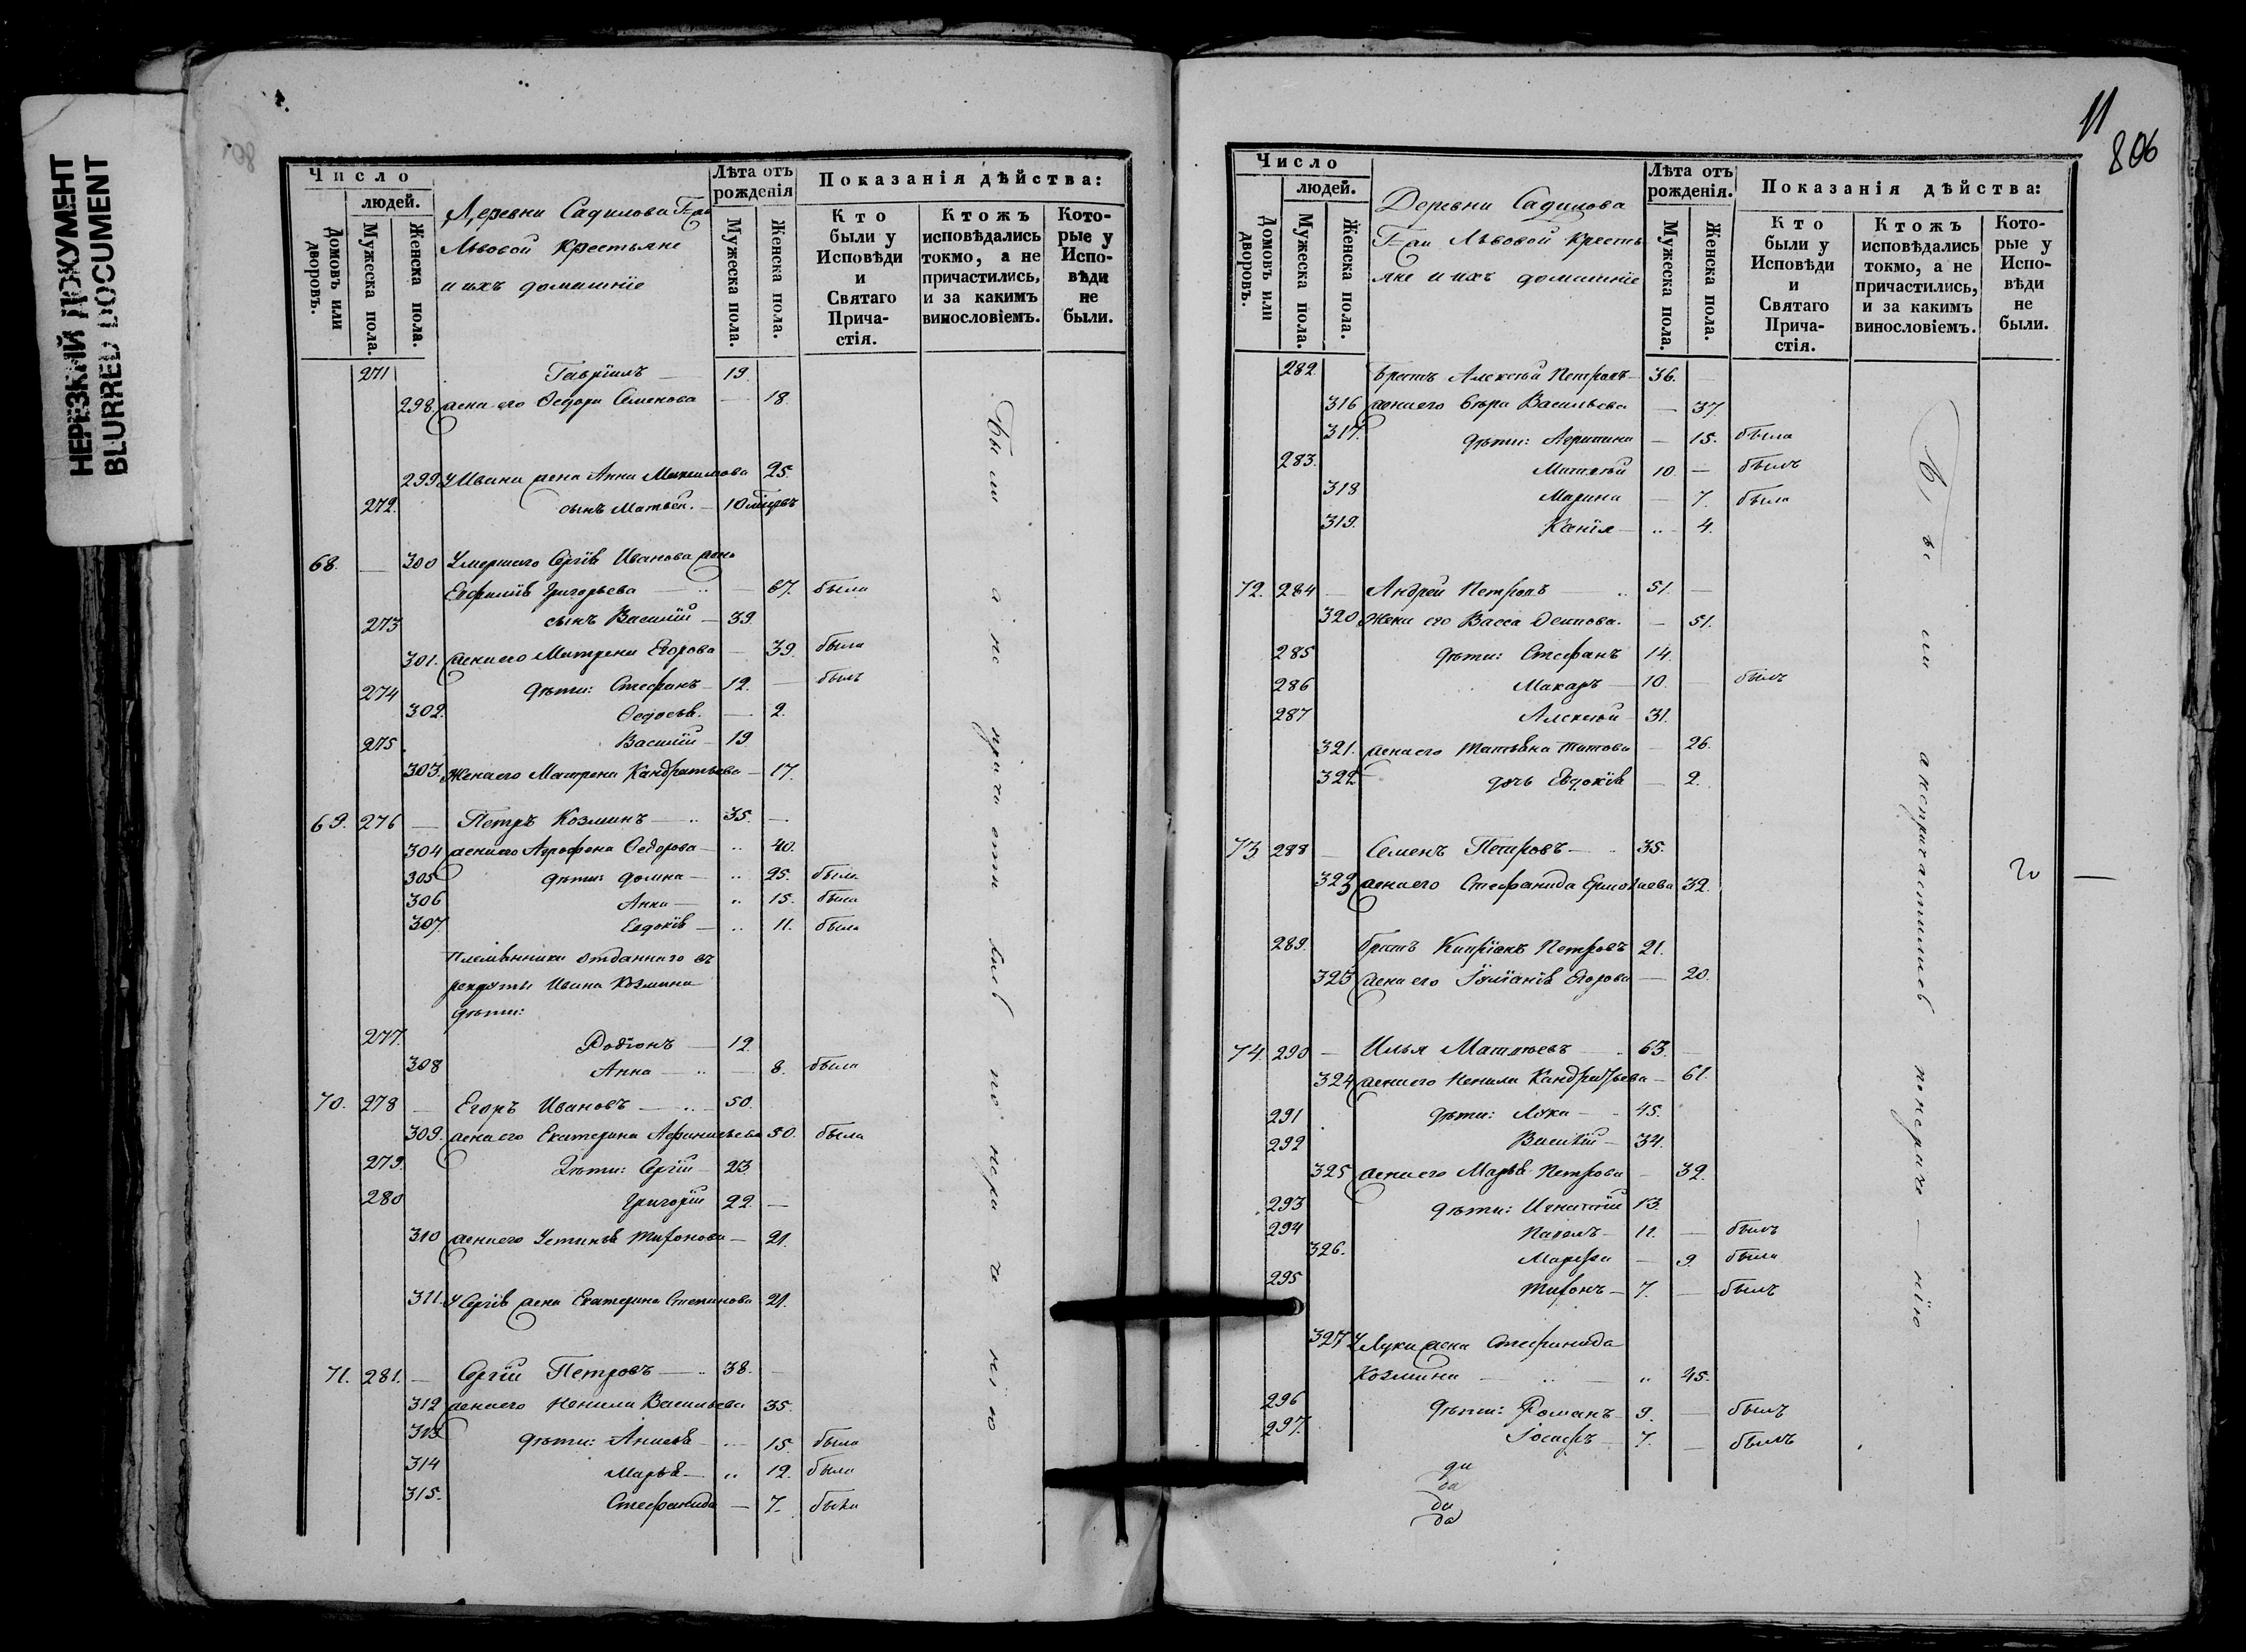 НЕРЕЗКИЙ ДОКУМЕНТ
BLURRED DOCUMENT
Число
людей.
Домовъ или дворовъ.
Мужеска пола.
Женска пола.
Деревни Садилова Г=жи
Львовой Крестьяне
и ихъ домашніе
Лѣта отъ рожденія
Мужеска пола.
Женска пола.
Показанія дѣйства:
Кто были у Исповѣди и Святаго Прича-стія.
Ктожъ исповѣдались токмо, а не причастились, и за какимъ винословіемъ.
Кото-рые у Испо-вѣди не были.
271 Гавріилъ — 19.
298. жена его Ѳедора Семенова — 18.
299. У Ивана жена Анна 25.
272. сынъ Матвей. — 10 мѣсцовъ
68. — 300 Умершаго Сергѣя Иванова жена
Евфимія Григорьева — 67. была
273 сынъ Василій — 39.
301. жена его Матрена Егорова — 39. была
274 дѣти: Стефанъ — 12. — былъ
302. Ѳедосья. — 2.
275 Василій — 19
303. Жена его Матрена Кандратьева — 17.
69. 276 — Петръ Козминъ — 35. —
304 жена его Агрофена Ѳедорова — 40.
305 дѣти: Домна — 25. была
306 Анна — 15. была
307. Евдокія — 11. была
Племянники отданнаго въ
рекруты Ивана Козмина
дѣти:
277. Родіонъ — 12.
308 Анна — 8. была
70. 278 — Егоръ Ивановъ — 50.
309. жена его Екатерина Афанасьева 50. была
279. Дѣти: Сергій — 23.
280 Григорій 22. —
310 жена его Устинья Тихонова — 21.
311. У Сергія жена Екатерина Степанова 21.
71. 281. — Сергій Петровъ — 38. —
312 жена его Ненила Васильева 35.
313 дѣти: Анисья — 15. была
314 Марья — 12. была
315. Стефанида — 7. была
Были а не причастились по нерачению
11
806
Число
людей.
Домовъ или дворовъ.
Мужеска пола.
Женска пола.
Деревни Садилова
Г=жи Львовой Кресть
яне и ихъ домашніе
Лѣта отъ рожденія.
Мужеска пола.
Женска пола.
Показанія дѣйства:
Кто были у Исповѣди и Святаго Прича-стія.
Ктожъ исповѣдались токмо, а не причастились, и за какимъ винословіемъ.
Кото-рые у Испо-вѣди не были.
282. Братъ Алексѣй Петровъ — 36. —
316 жена его Вѣра Васильева — 37.
317. дѣти: — 15. была
283. Матвѣй 10. — былъ
318 Марина — 7. была
319. — 4.
72. 284 — Андрей Петровъ 51. —
320 Жена его Васса Осипова. — 51.
285 дѣти: Стефанъ 14.
286 Макаръ — 10. — былъ
287 Алексѣй — 31.
321. жена его Татьяна Титова — 26.
322 дочь Евдокія — 2.
73 288 — Семенъ Петровъ — 35.
323 жена его Стефанида Ермолаева 32.
289. братъ Кипріанъ Петровъ 21.
323 жена его Іуліанія Егорова — 20.
74. 290 — Илья Матвѣевъ 63. —
324 жена его Ненила Кандратьева — 61.
291 дѣти: Лука — 45.
292 Василій — 34.
325 жена его Марья Петрова — 32.
293 дѣти: Игнатій 13.
294 Павелъ — 11. — былъ
326. Марфа — 9. была
295 Тихонъ — 7. — былъ
327 У Луки жена Стефанида
Козмина — 45.
296 дѣти: Романъ — 9. — былъ
297. Іосифъ 7. — былъ
Были а не причастились по нерачению